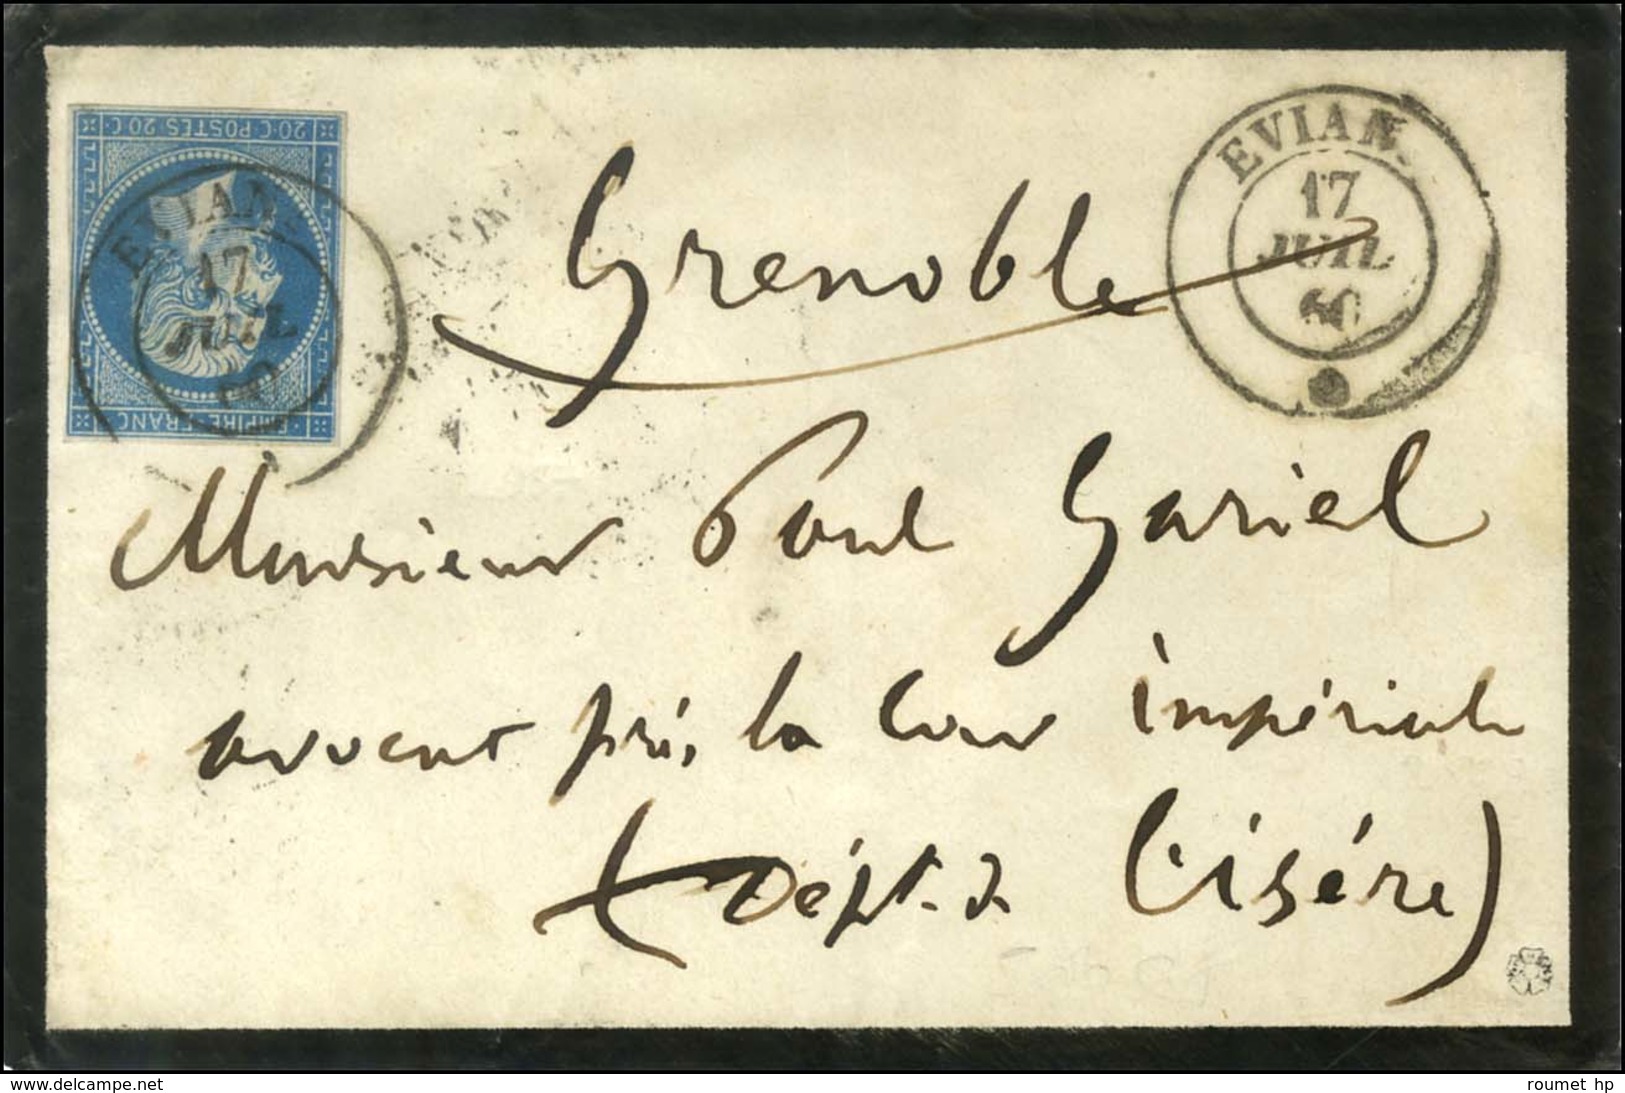 20·C·POSTES 20·C
EMPIRE FRANC
EVIAN
17
JUIL
60
EVIAN.
17
JUIL
60
Grenoble
Monsieur Paul Gariel
avocat près la Cour impériale
(Dépt. de l'isère)
www.delcampe.net
roumet hp